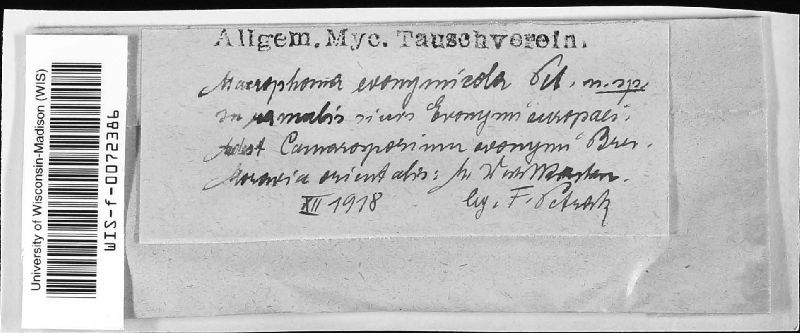 University of Wisconsin-Madison (WIS)
WIS-f-0072386
Allgem. Myc. Tauschverein.
Macrophoma evonymicola Pet. n. sp.
In ramulis siccis Evonymi europaei.
Adest Camarosporium evonymi Bres.
Moravia orientalis:
XII 1918 leg. F. Petrak